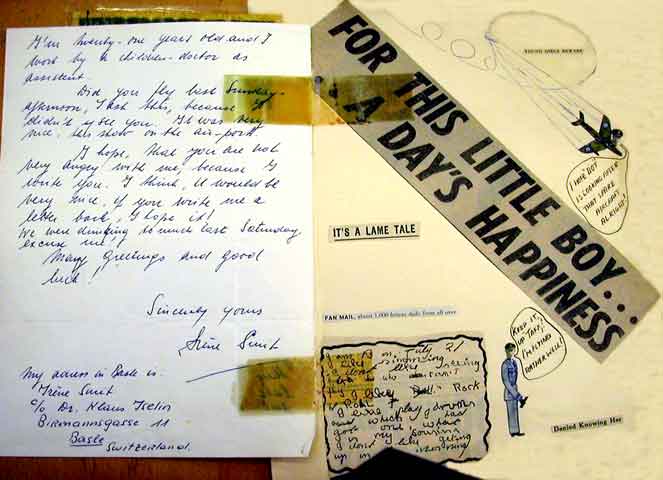 I'm twenty-one years old and I
work by a children-doctor as
assistent.
Did you fly last Sunday-
afternoon, I ask this, because I
didn't see you. It was very
nice, this show on the air-port.
I hope, that you are not
very angry with me, because I
write you. I think, it would be
very nice, if you write me a
letter back, I hope it!
We were drinking to much last Saturday
excuse me!
Many greetings and good
luck!
Sincerely yours
Irène
My adress in Basle is:
Irène
c/o Dr. Klaus Iselin
Birmannsgasse 11
Basle
Switzerland.
FOR THIS LITTLE BOY...
A DAY'S HAPPINESS
YOUNG GIRLS BEWARE
I HOPE 'BOY'
IS LOOKING AFTER
THAT SPARE
AIRCRAFT
ALRIGHT!
IT'S A LAME TALE
FAN MAIL, about 1,000 letters daily from all over
KEEP IT
UP TAFF;
I'M FLYING
RATHER WELL!
Denied Knowing Her
July 21
I like
I like
Rock
I like play drums
and which
got one
in my
I don't like getting
up in